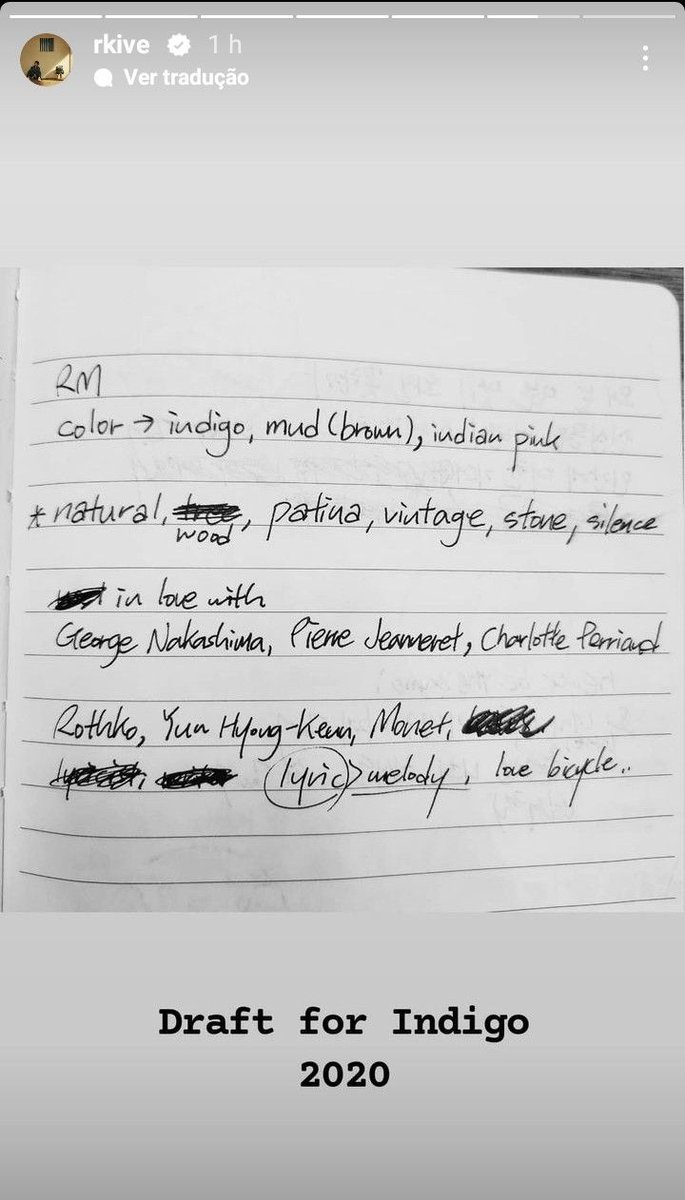 rkive 1 h
Ver tradução
RM
color → indigo, mud (brown), indian pink
*natural, tree, patina, vintage, stone, silence
wood
in love with
George Nakashima, Pierre Jeanneret, Charlotte Perriand
Rothko, Yun Hyong-Keun, Monet,
lyric > melody, love bicycle..
Draft for Indigo
2020